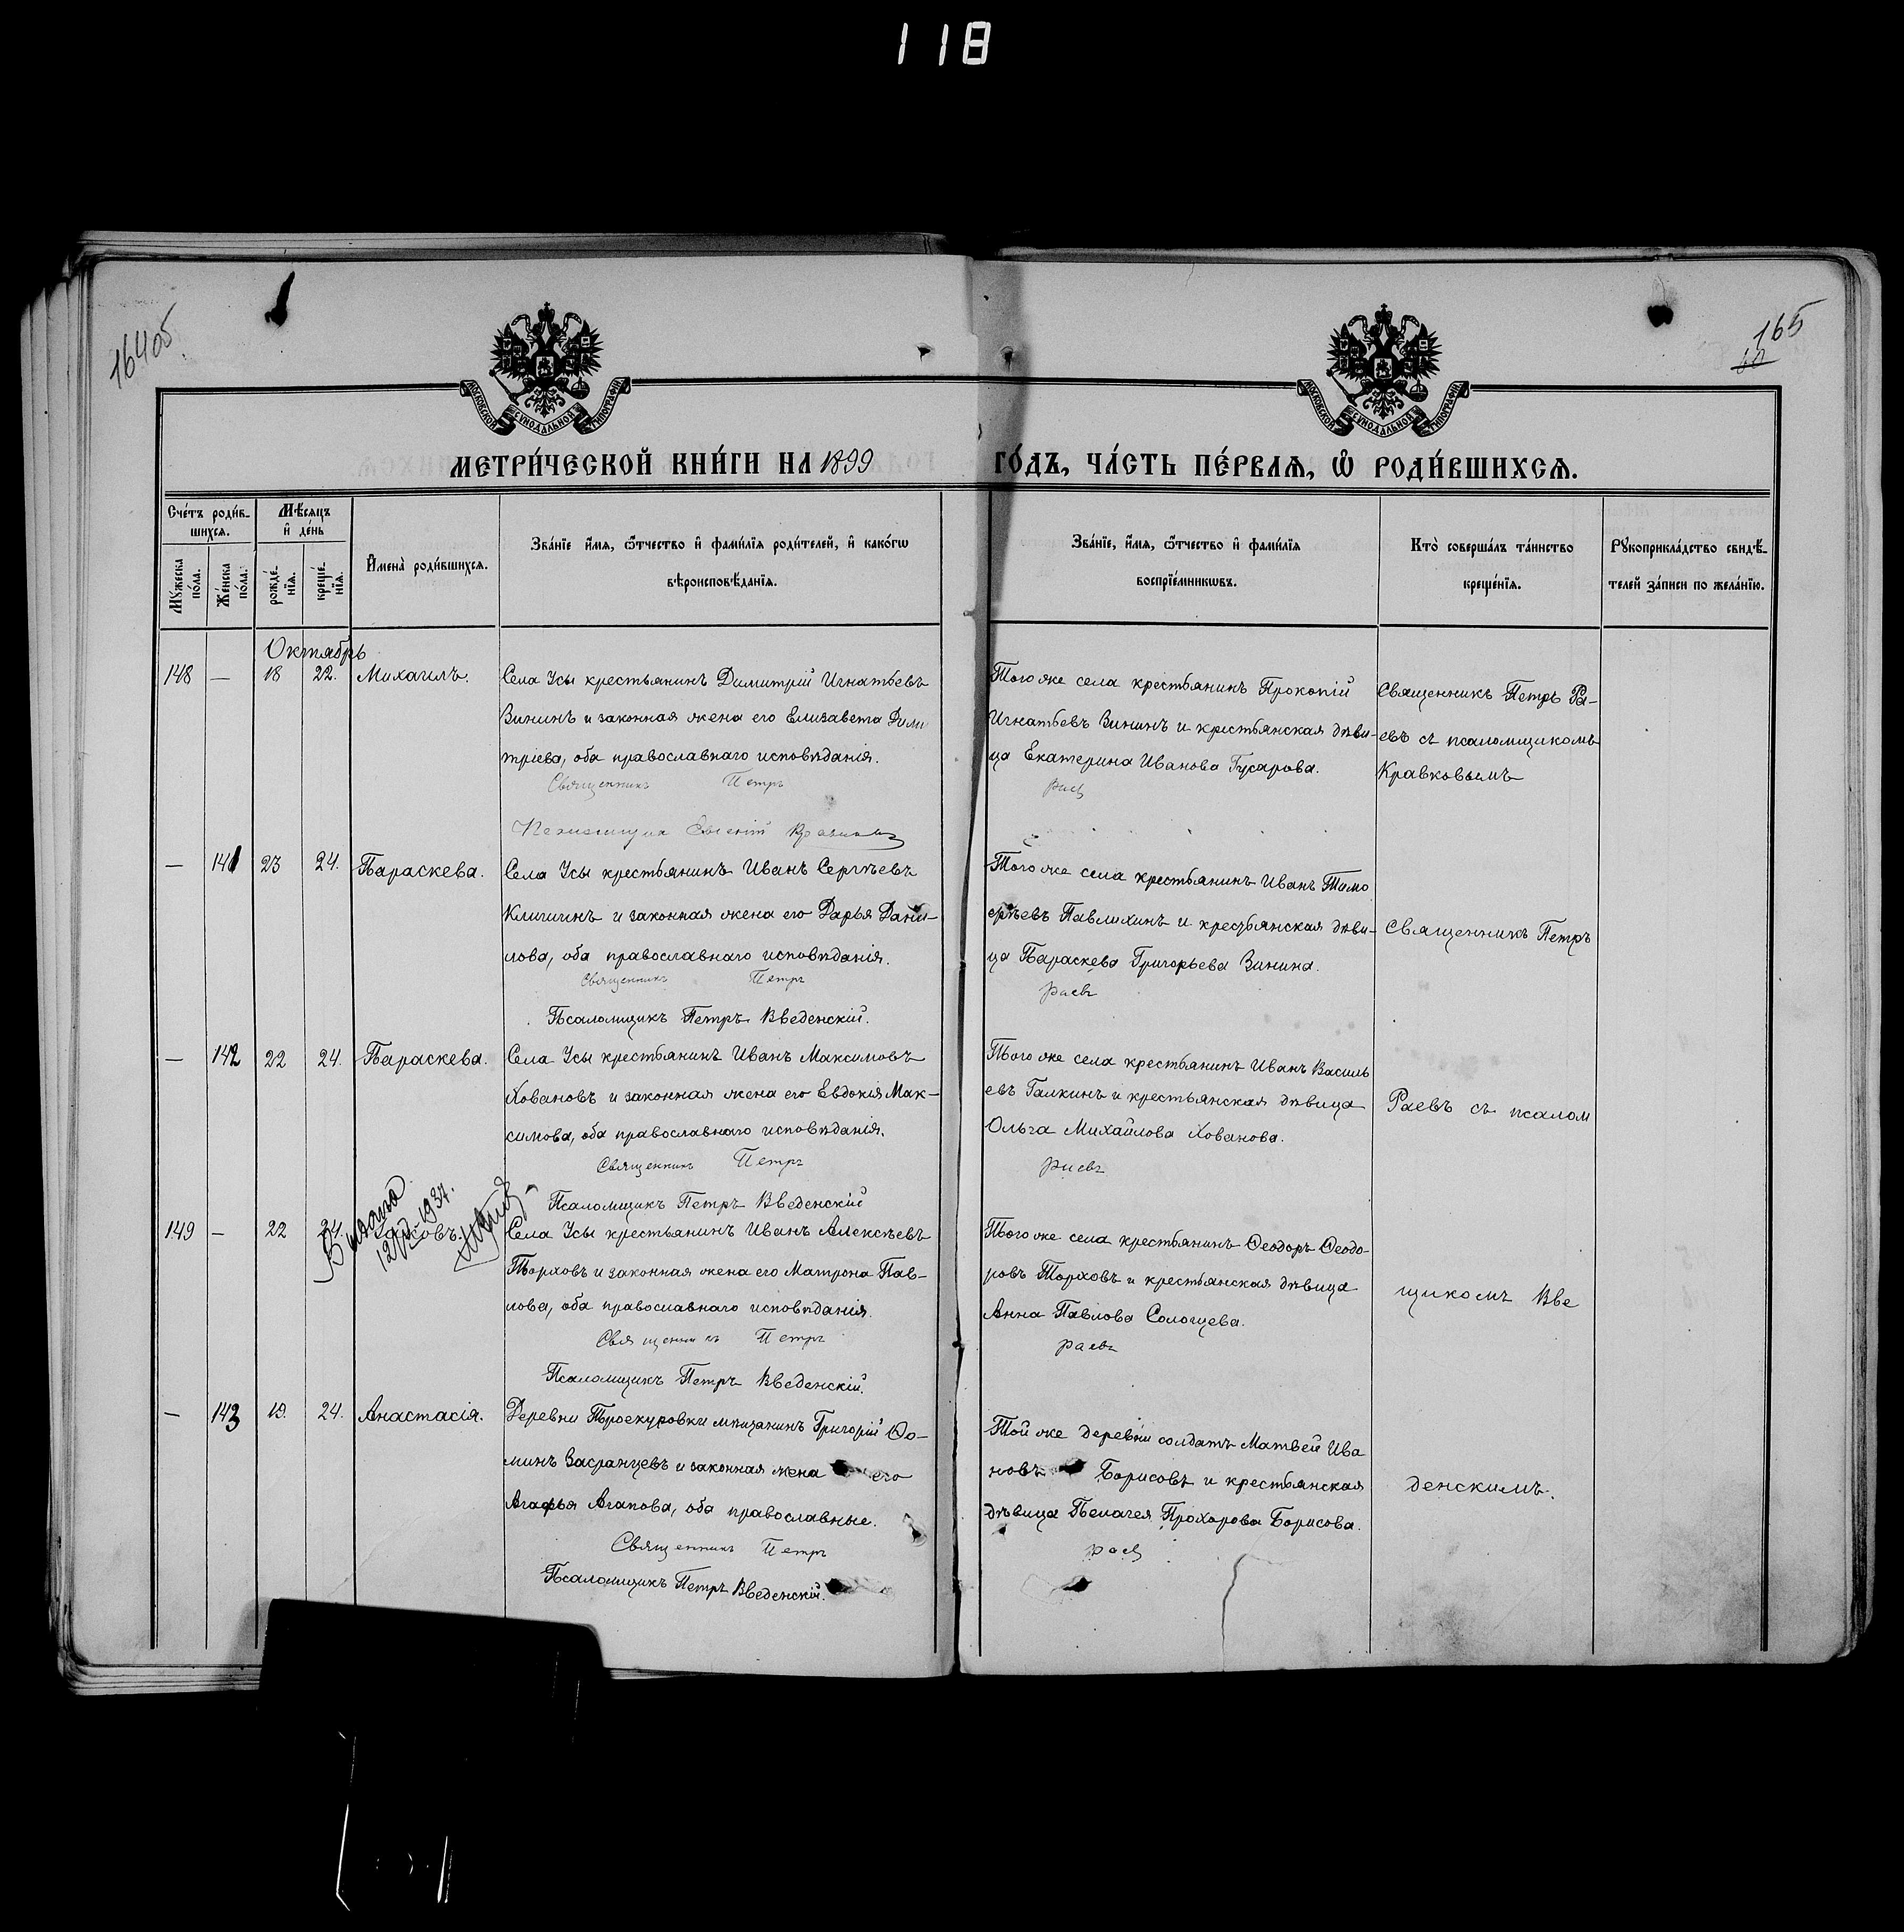 118
164об.
165
60
МОСКОВСКОЙ СУНОДАЛЬНОЙ ТИПОГРАФІИ
МОСКОВСКОЙ СУНОДАЛЬНОЙ ТИПОГРАФІИ
МЕТРИ́ЧЕСКОЙ КНИ́ГИ НА 1899 ГО́ДЪ, ЧА́СТЬ ПЕ́РВАѦ, Ѡ РОДИ́ВШИХСѦ.
Сче́тъ роди́в-
шихсѧ.
Мѣ́сѧцъ
и҆ де́нь
Мꙋ́жеска
по́ла.
Же́нска
по́ла.
рожде́-
нїѧ.
креще́-
нїѧ.
И҆мена̀ роди́вшихсѧ.
Зва́нїе и҆́мѧ, ѻ҆́тчество и҆ фами́лїѧ роди́телей, и҆ како́гѡ
вѣроисповѣ́данїѧ.
Зва́нїе, и҆́мѧ, ѻ҆́тчество и҆ фами́лїѧ
воспрїе́мникѡвъ.
Кто̀ соверша́лъ та́инство
креще́нїѧ.
Рꙋкоприкла́дство свидѣ́-
телей за́писи по жела́нїю.
Октябрь
148 — 18 22. Михаилъ.
Села Усы крестьянинъ Димитрій Игнатьевъ
Зининъ и законная жена его Елизавета Дими
тріева, оба православнаго исповѣданія.
Священникъ Петръ
Того же села крестьянинъ Прокопій
Игнатьевъ Зининъ и крестьянская дѣви-
ца Екатерина Иванова Гусарова.
Раев
Священникъ Петръ Ра-
евъ съ псаломщикомъ
Кравковымъ
— 141 23 24. Параскева.
Села Усы крестьянинъ Иванъ Сергѣевъ
Клишинъ и законная жена его Дарья Дани-
лова, оба православнаго исповѣданія.
Священникъ Петръ
Псаломщикъ Петръ Введенскій.
Того же села крестьянинъ Иванъ Тимо
ѳеевъ Павлихинъ и крестьянская дѣви-
ца Параскева Григорьева Зинина.
Раевъ
Священникъ Петръ
— 142 22 24. Параскева.
Села Усы крестьянинъ Иванъ Максимовъ
Ховановъ и законная жена его Евдокія Мак-
симова, оба православнаго исповѣданія.
Священникъ Петръ
Псаломщикъ Петръ Введенскій
Того же села крестьянинъ Иванъ Василь
евъ Галкинъ и крестьянская дѣвица
Ольга Михайлова Хованова.
Раевъ
Раевъ съ псалом
149 — 22 24. Іаковъ.
Села Усы крестьянинъ Иванъ Алексѣевъ
Торховъ и законная жена его Матрона Пав-
лова, оба православнаго исповѣданія.
Священникъ Петръ
Псаломщикъ Петръ Введенскій.
Того же села крестьянинъ Ѳеодоръ Ѳеодо-
ровъ Торховъ и крестьянская дѣвица
Анна Павлова Сологцева.
Раевъ
щикомъ Вве
— 143 19. 24. Анастасія.
Деревни Троекуровки мѣщанинъ Григорій Ѳо-
минъ Засранцевъ и законная жена его
Агафья Агапова, оба православные.
Священникъ Петръ
Псаломщикъ Петръ Введенскій.
Той же деревни солдатъ Матвей Ива
новъ Борисовъ и крестьянская
дѣвица Пелагея Прохорова Борисова.
Раев
денскимъ.